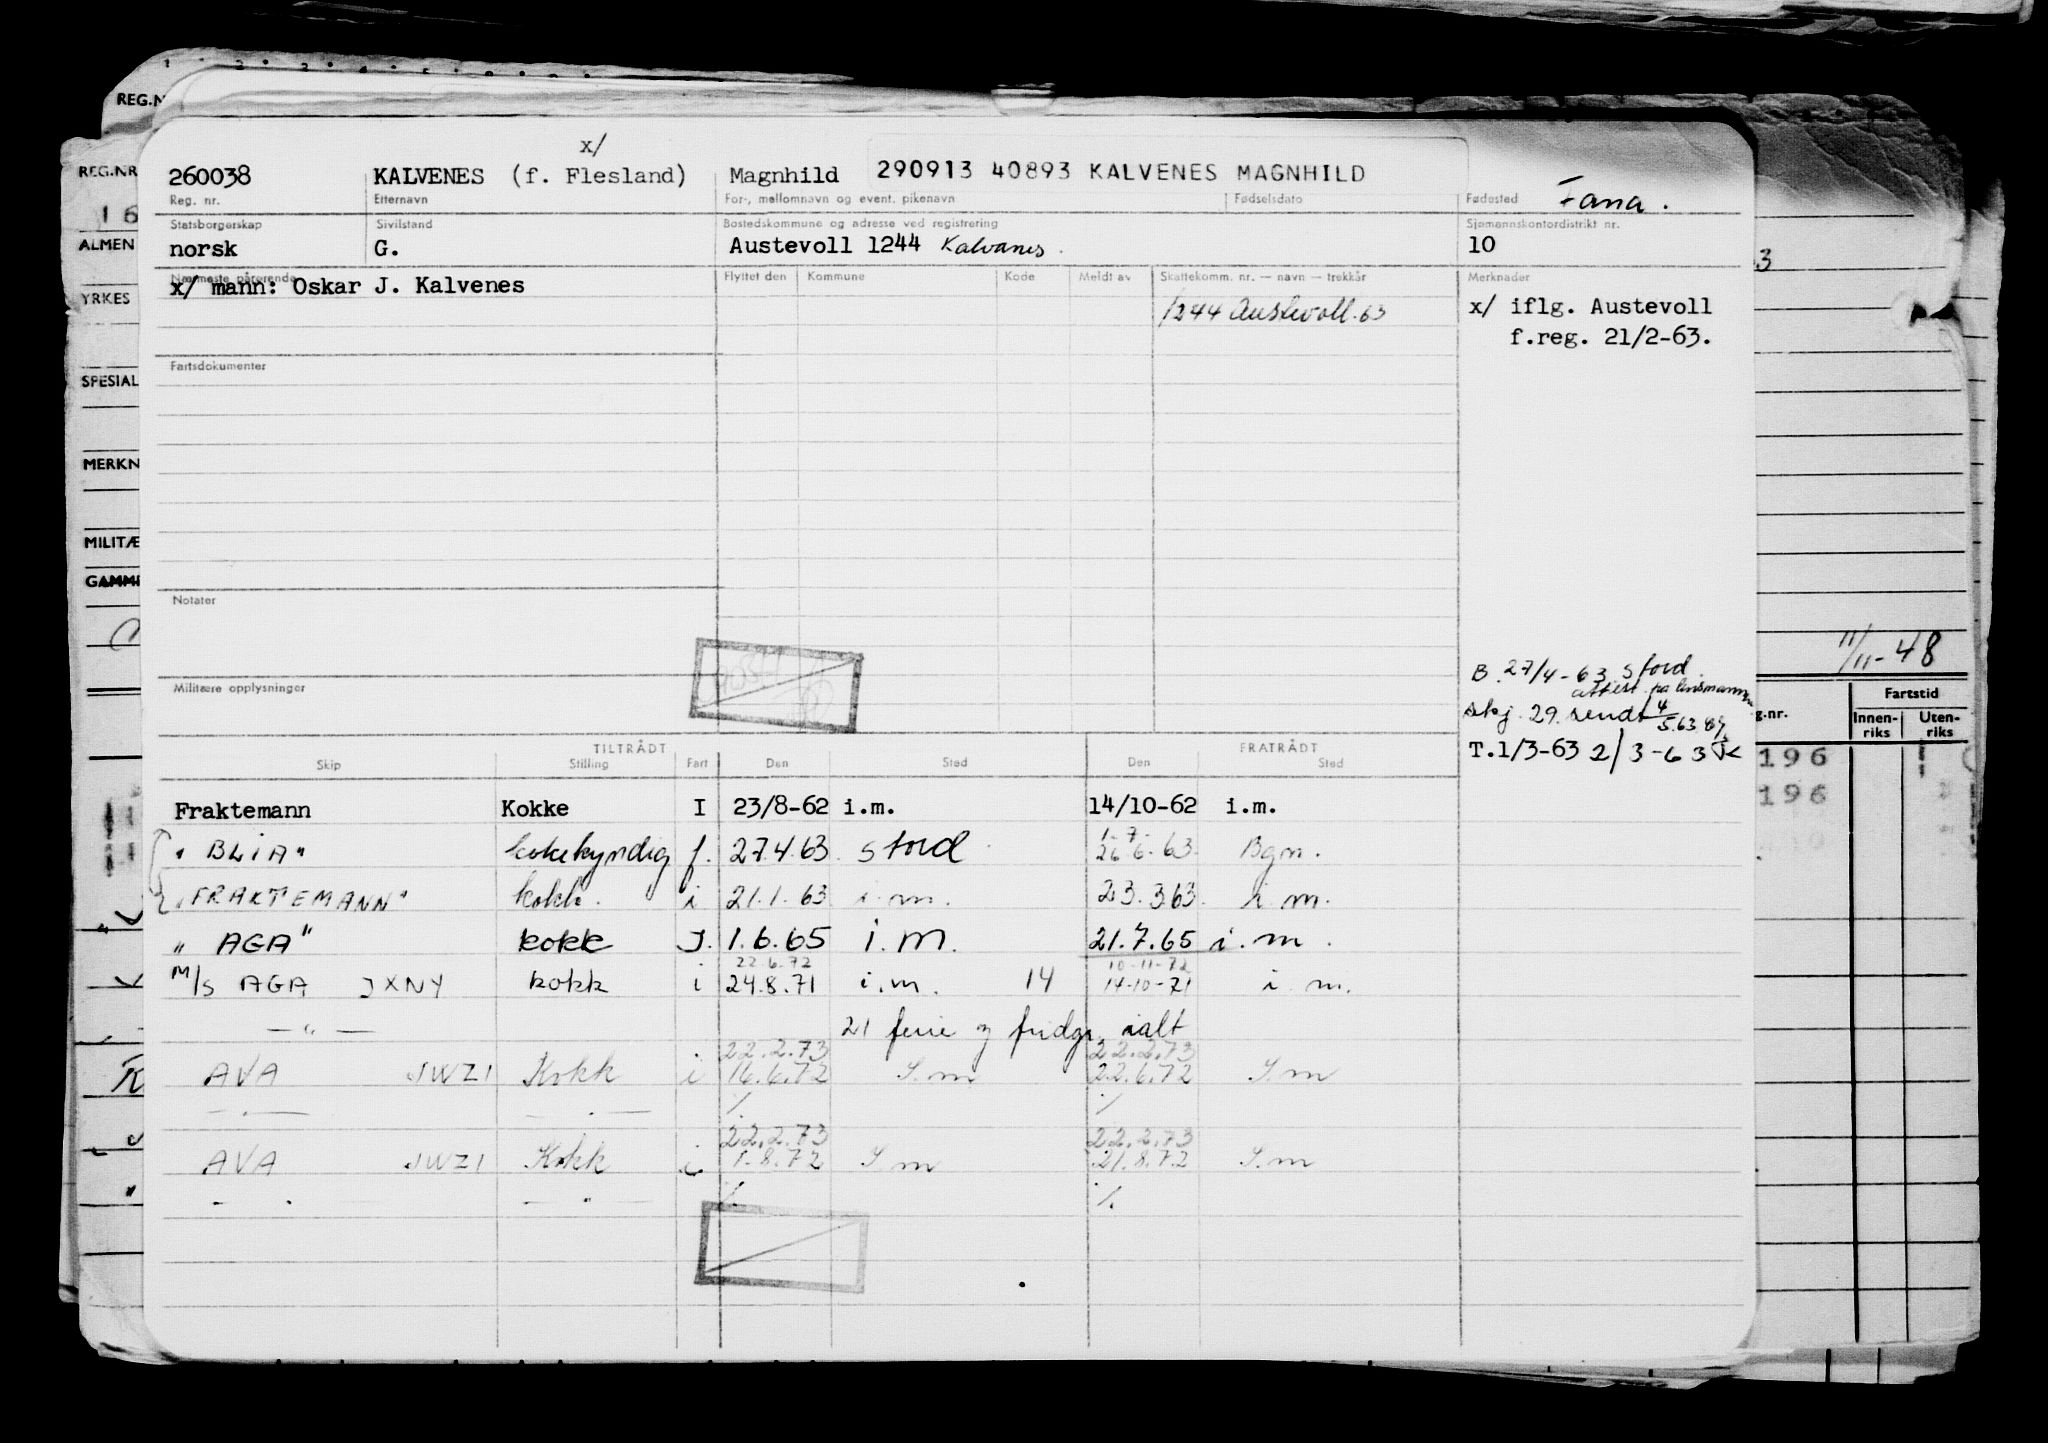 x/
260038 KALVENES (f. Flesland) Magnhild 290913 40893 KALVENES MAGNHILD Fana.
Reg. nr. Etternavn For-, mellomnavn og event. pikenavn Fødselsdato Fødested
Statsborgerskap Sivilstand Bostedskommune og adresse ved registrering Sjømannskontordistrikt nr.
norsk G. Austevoll 1244 Kalvanes. 10
Nærmeste pårørende Flyttet den Kommune Kode Meldt av Skattekomm. nr. — navn — trekkår Merknader
x/ mann: Oskar J. Kalvenes
1244 Austevoll.63
x/ iflg. Austevoll
f.reg. 21/2-63.
Fartsdokumenter
Notater
Militære opplysninger
B. 27/4-63 Stord.
attest. fra lensmannen
skj. 29. sendt 4/5.63
T.1/3-63 2/3-63
TILTRÅDT FRATRÅDT
Skip Stilling Fart Den Sted Den Sted
Fraktemann Kokke I 23/8-62 i.m. 14/10-62 i.m.
1-7-
" BLIA" kokekyndig f. 27.4.63. Stord 26-6-63. Bgn.
"FRAKTEMANN" kokk. i 21.1.63 i.m. 23.3.63. i.m.
" AGA" kokk I. 1.6.65 i.m. 21.7.65 i.m.
22.6.72 10-11-72
M/S AGA JXNY kokk i 24.8.71 i.m. 14 14-10-71 i.m.
— " — 21 ferie og fridgr. ialt
22.2.73 22.2.73
AVA JWZI Kokk i 16.6.72 I.m 22.6.72 I.m
22.2.73 22.2.73
AVA JWZI Kokk i 1.8.72 I.m 21.8.72 I.m
REG.N
REG.NR
16
ALMEN
YRKES
SPESIAL
MERKN
MILITÆ
GAMME
K
3
11/11-48
Fartstid
g.nr. Innen-riks Uten-riks
196
196